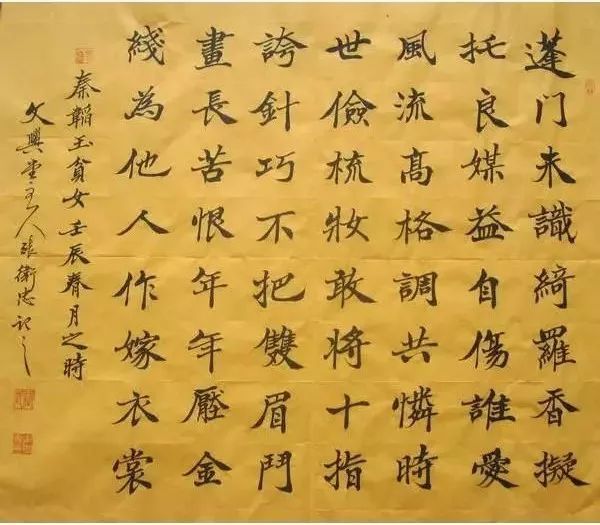 蓬门未識綺羅香擬
托良媒益自傷誰愛
風流高格調共憐時
世儉梳妝敢將十指
誇針巧不把雙眉鬥
畫長苦恨年年壓金
綫為他人作嫁衣裳
秦韜玉貧女壬辰春月之時
文興堂主人張衛忠記之